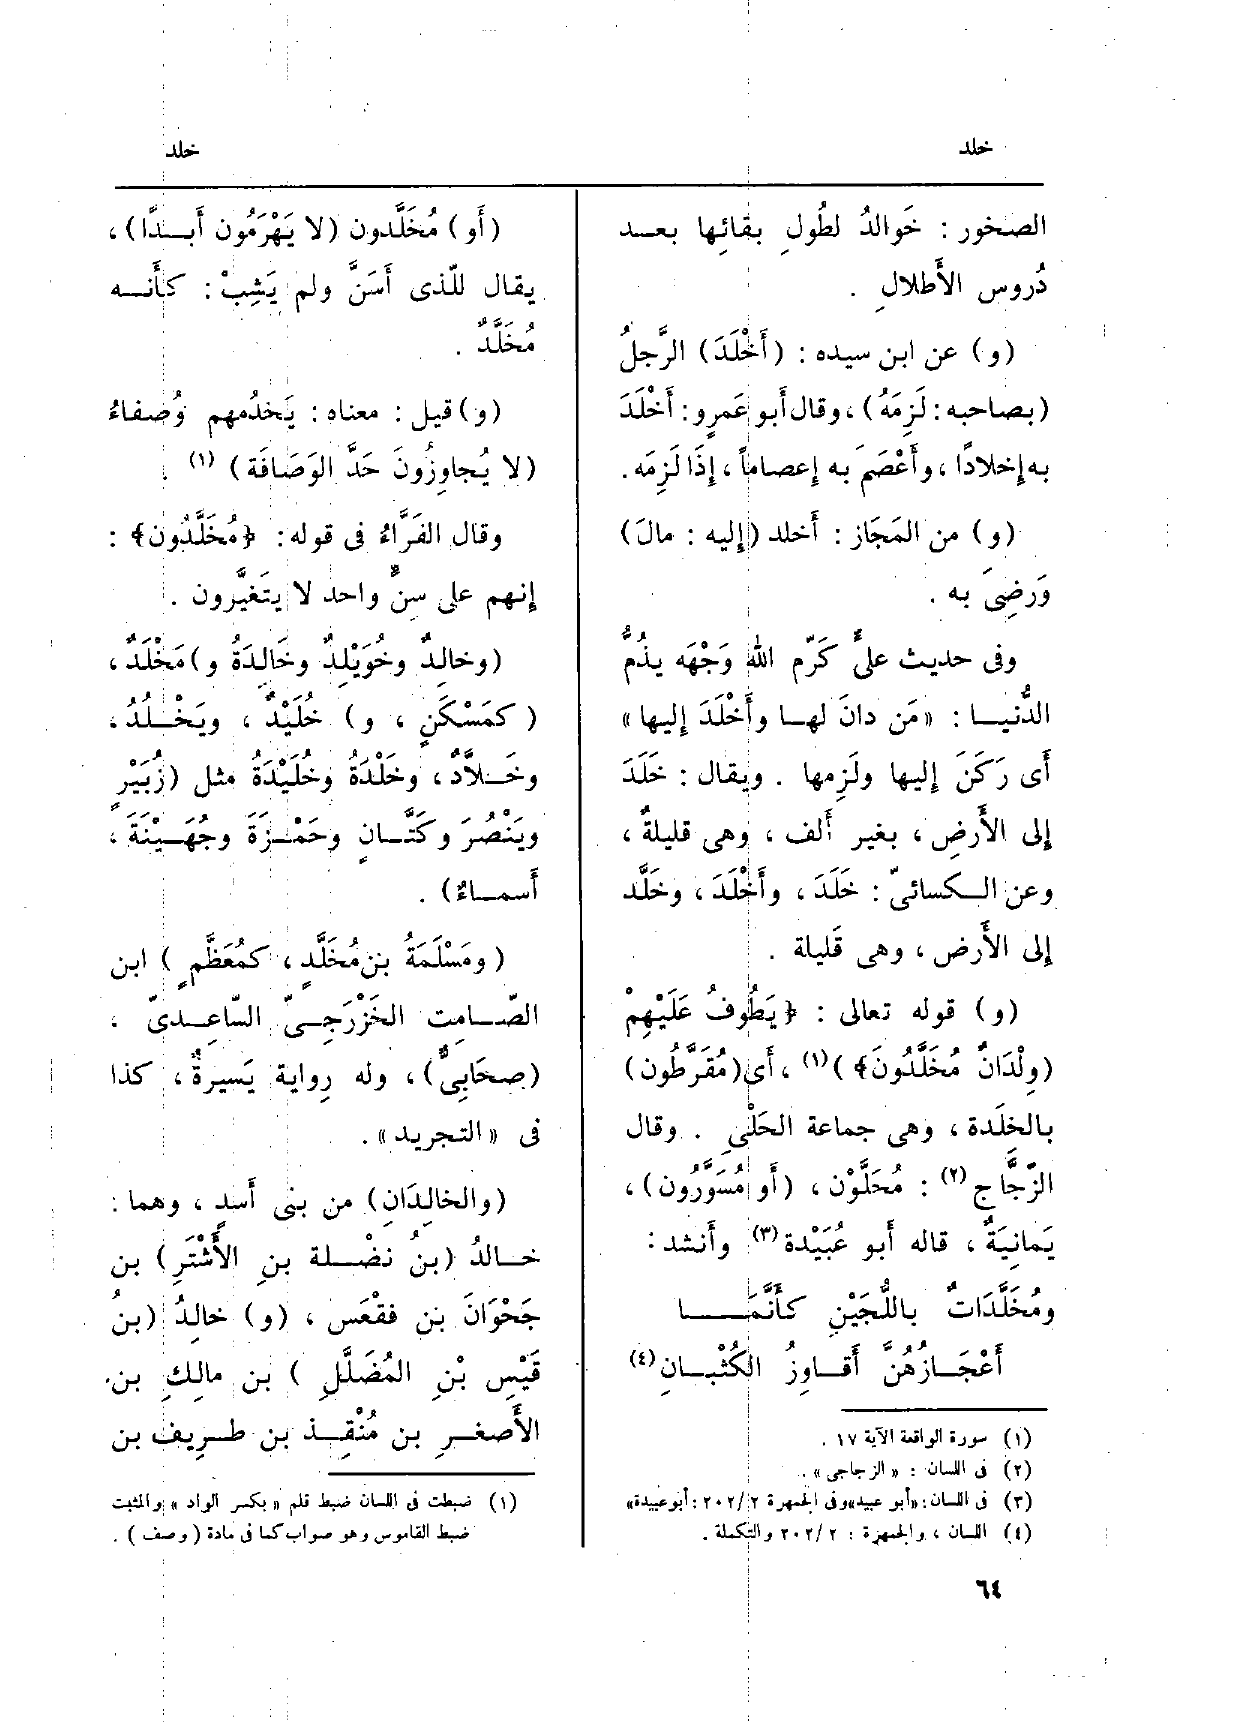 خلد
خلد
الصخور : خَوالدُ لطُولِ بقائِها بعد
دُروس الأَطلالِ .
(و) عن ابن سيده : (أَخْلَدَ) الرَّجلُ
(بصاحبه : لَزِمَهُ) ، وقال أَبو عَمرٍو : أَخْلَدَ
به إخلادًا ، وأَعْصَمَ به إعصاماً ، إذَا لَزِمَه .
(و) من المَجَاز : أَخلد (إليه : مالَ)
وَرَضِىَ به .
وفى حديث علىٍّ كَرَّم اللهُ وَجْهَه يذُمُّ
الدُّنيا : «مَن دانَ لها وأَخْلَدَ إليها»
أَى رَكَنَ إليها ولَزِمها . ويقال : خَلَدَ
إلى الأَرضِ ، بغير أَلف ، وهى قليلةٌ ،
وعن الكسائىّ : خَلَدَ ، وأَخْلَدَ ، وخَلَّد
إلى الأَرض ، وهى قَليلة .
(و) قوله تعالى : ﴿يَطُوفُ عَلَيْهِمْ
(وِلْدَانٌ مُخَلَّدُونَ﴾)(١) ، أَى (مُقَرَّطُون)
بالخِلَدة ، وهى جماعة الحَلْىِ . وقال
الزَّجَّاج(٢) : مُحَلَّوْن ، (أَو مُسَوَّرُون) ،
يَمانِيَةٌ ، قاله أَبو عُبَيْدة(٣) وأَنشد :
ومُخَلَّدَاتٌ باللُّجَيْنِ كأَنَّمَا
أَعْجَازُهُنَّ أَقاوِزُ الكُثْبانِ(٤)
(١) سورة الواقعة الآية ١٧ .
(٢) فى اللسان : «الزجاجى» .
(٣) فى اللسان : «أبو عبيد» وفى الجمهرة ٢٠٢/٢ : أبو عبيدة»
(٤) اللسان ، والجمهرة : ٢٠٢/٢ والتكملة .
(أَو) مُخَلَّدون (لا يَهْرَمُون أَبدًا) ،
يقال للّذى أَسَنَّ ولم يَشِبْ : كأَنه
مُخَلَّدٌ .
(و) قيل : معناه : يَخدُمهم وُصفاءُ
(لا يُجاوِزُونَ حَدَّ الوَصَافَة) (١) .
وقال الفَرَّاءُ فى قوله : ﴿مُخَلَّدُون﴾ :
إنهم على سنٍّ واحد لا يتَغيَّرون .
(وخالِدٌ وخُوَيْلِدٌ وخَالِدَةُ و) مَخْلَدٌ ،
(كمَسْكَنٍ ، و) خُلَيْدٌ ، ويَخْلُدُ ،
وخَلاَّدٌ ، وخَلْدَةُ وخُلَيْدَةُ مثل (زُبَيْرٍ
ويَنْصُرَ وكَتَّانٍ وحَمْزَةَ وجُهَيْنَةَ ،
أَسماءٌ) .
(ومَسْلَمَةُ بن مُخَلَّدٍ ، كمُعَظَّمٍ ) ابن
الصَّامِت الخَزْرَجِىّ السَّاعِدىّ ،
(صحَابِىٌّ) ، وله رواية يَسيرةٌ ، كذا
فى «التجريد» .
(والخالِدَانِ) من بنى أَسدٍ ، وهما :
خالدُ (بنُ نضْلة بنِ الأَشْتَرِ) بن
جَحْوَانَ بن فقْعَس ، (و) خالِدُ (بنُ
قَيْسِ بْنِ المُضَلَّلِ ) بن مالِكِ بن
الأَصغرِ بن مُنْقِذ بن طرِيف بن
(١) ضبطت فى اللسان ضبط قلم «بكسر الواد» والمثبت
ضبط القاموس وهو صواب كما فى مادة (وصف) .
٦٤